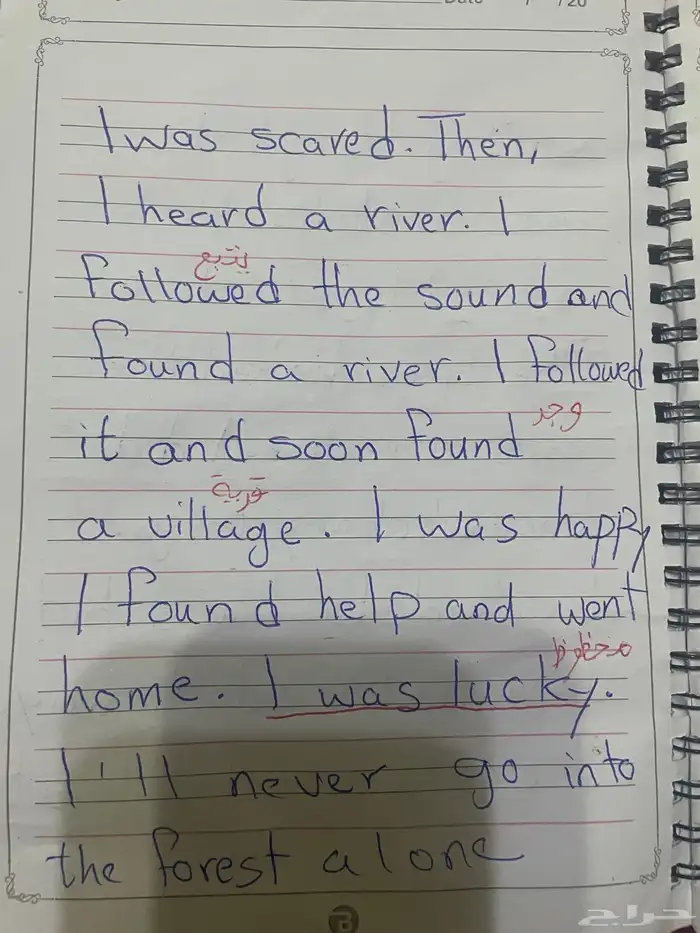 / /20
I was scared. Then,
I heard a river. I
يتبع
followed the sound and
found a river. I followed
وجد
it and soon found
قرية
a village. I was happy
I found help and went
محظوظ
home. I was lucky.
I'll never go into
the forest alone
حراج